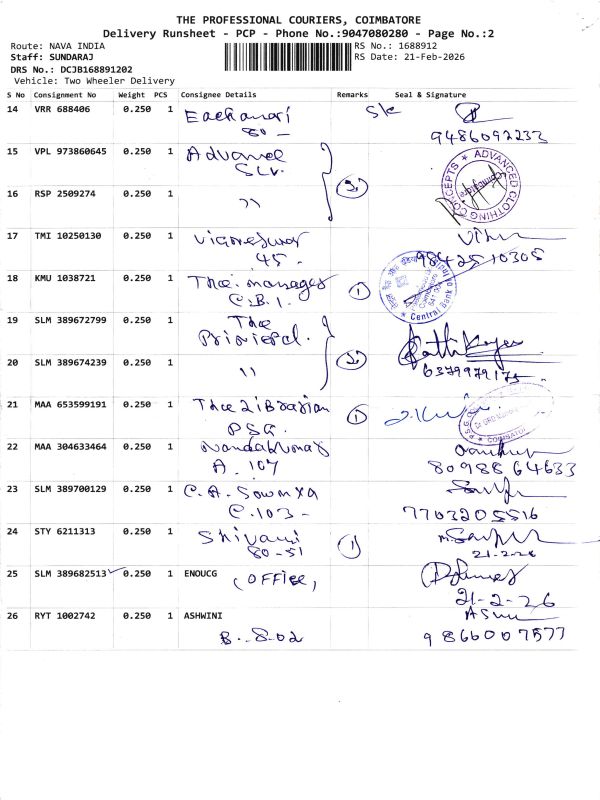 THE PROFESSIONAL COURIERS, COIMBATORE
Delivery Runsheet - PCP - Phone No.:9047080280 - Page No.:2
Route: NAVA INDIA
Staff: SUNDARAJ
DRS No.: DCJB168891202
Vehicle: Two Wheeler Delivery
RS No.: 1688912
RS Date: 21-Feb-2026
S No Consignment No Weight PCS Consignee Details Remarks Seal & Signature
14 VRR 688406 0.250 1
80 -
9486092233
15 VPL 973860645 0.250 1 Advance
ADVANCED CLOTHING CONCEPTS
16 RSP 2509274 0.250 1 ''
17 TMI 10250130 0.250 1 Vigneswar
45 -
9842510305
18 KMU 1038721 0.250 1 The. manager ①
C.B.I.
Central Bank
19 SLM 389672799 0.250 1 The
Principal.
20 SLM 389674239 0.250 1 ''
6379979175
21 MAA 653599191 0.250 1 The Librarian ①
PSG.
22 MAA 304633464 0.250 1
A. 107
8098864633
23 SLM 389700129 0.250 1 C.A. Sowmya
C.103-
7703205516
24 STY 6211313 0.250 1 Shivani ①
80-51
21-2-26
25 SLM 389682513 0.250 1 ENOUCG (OFFICE)
21-2-26
26 RYT 1002742 0.250 1 ASHWINI
B.-802
9866007577